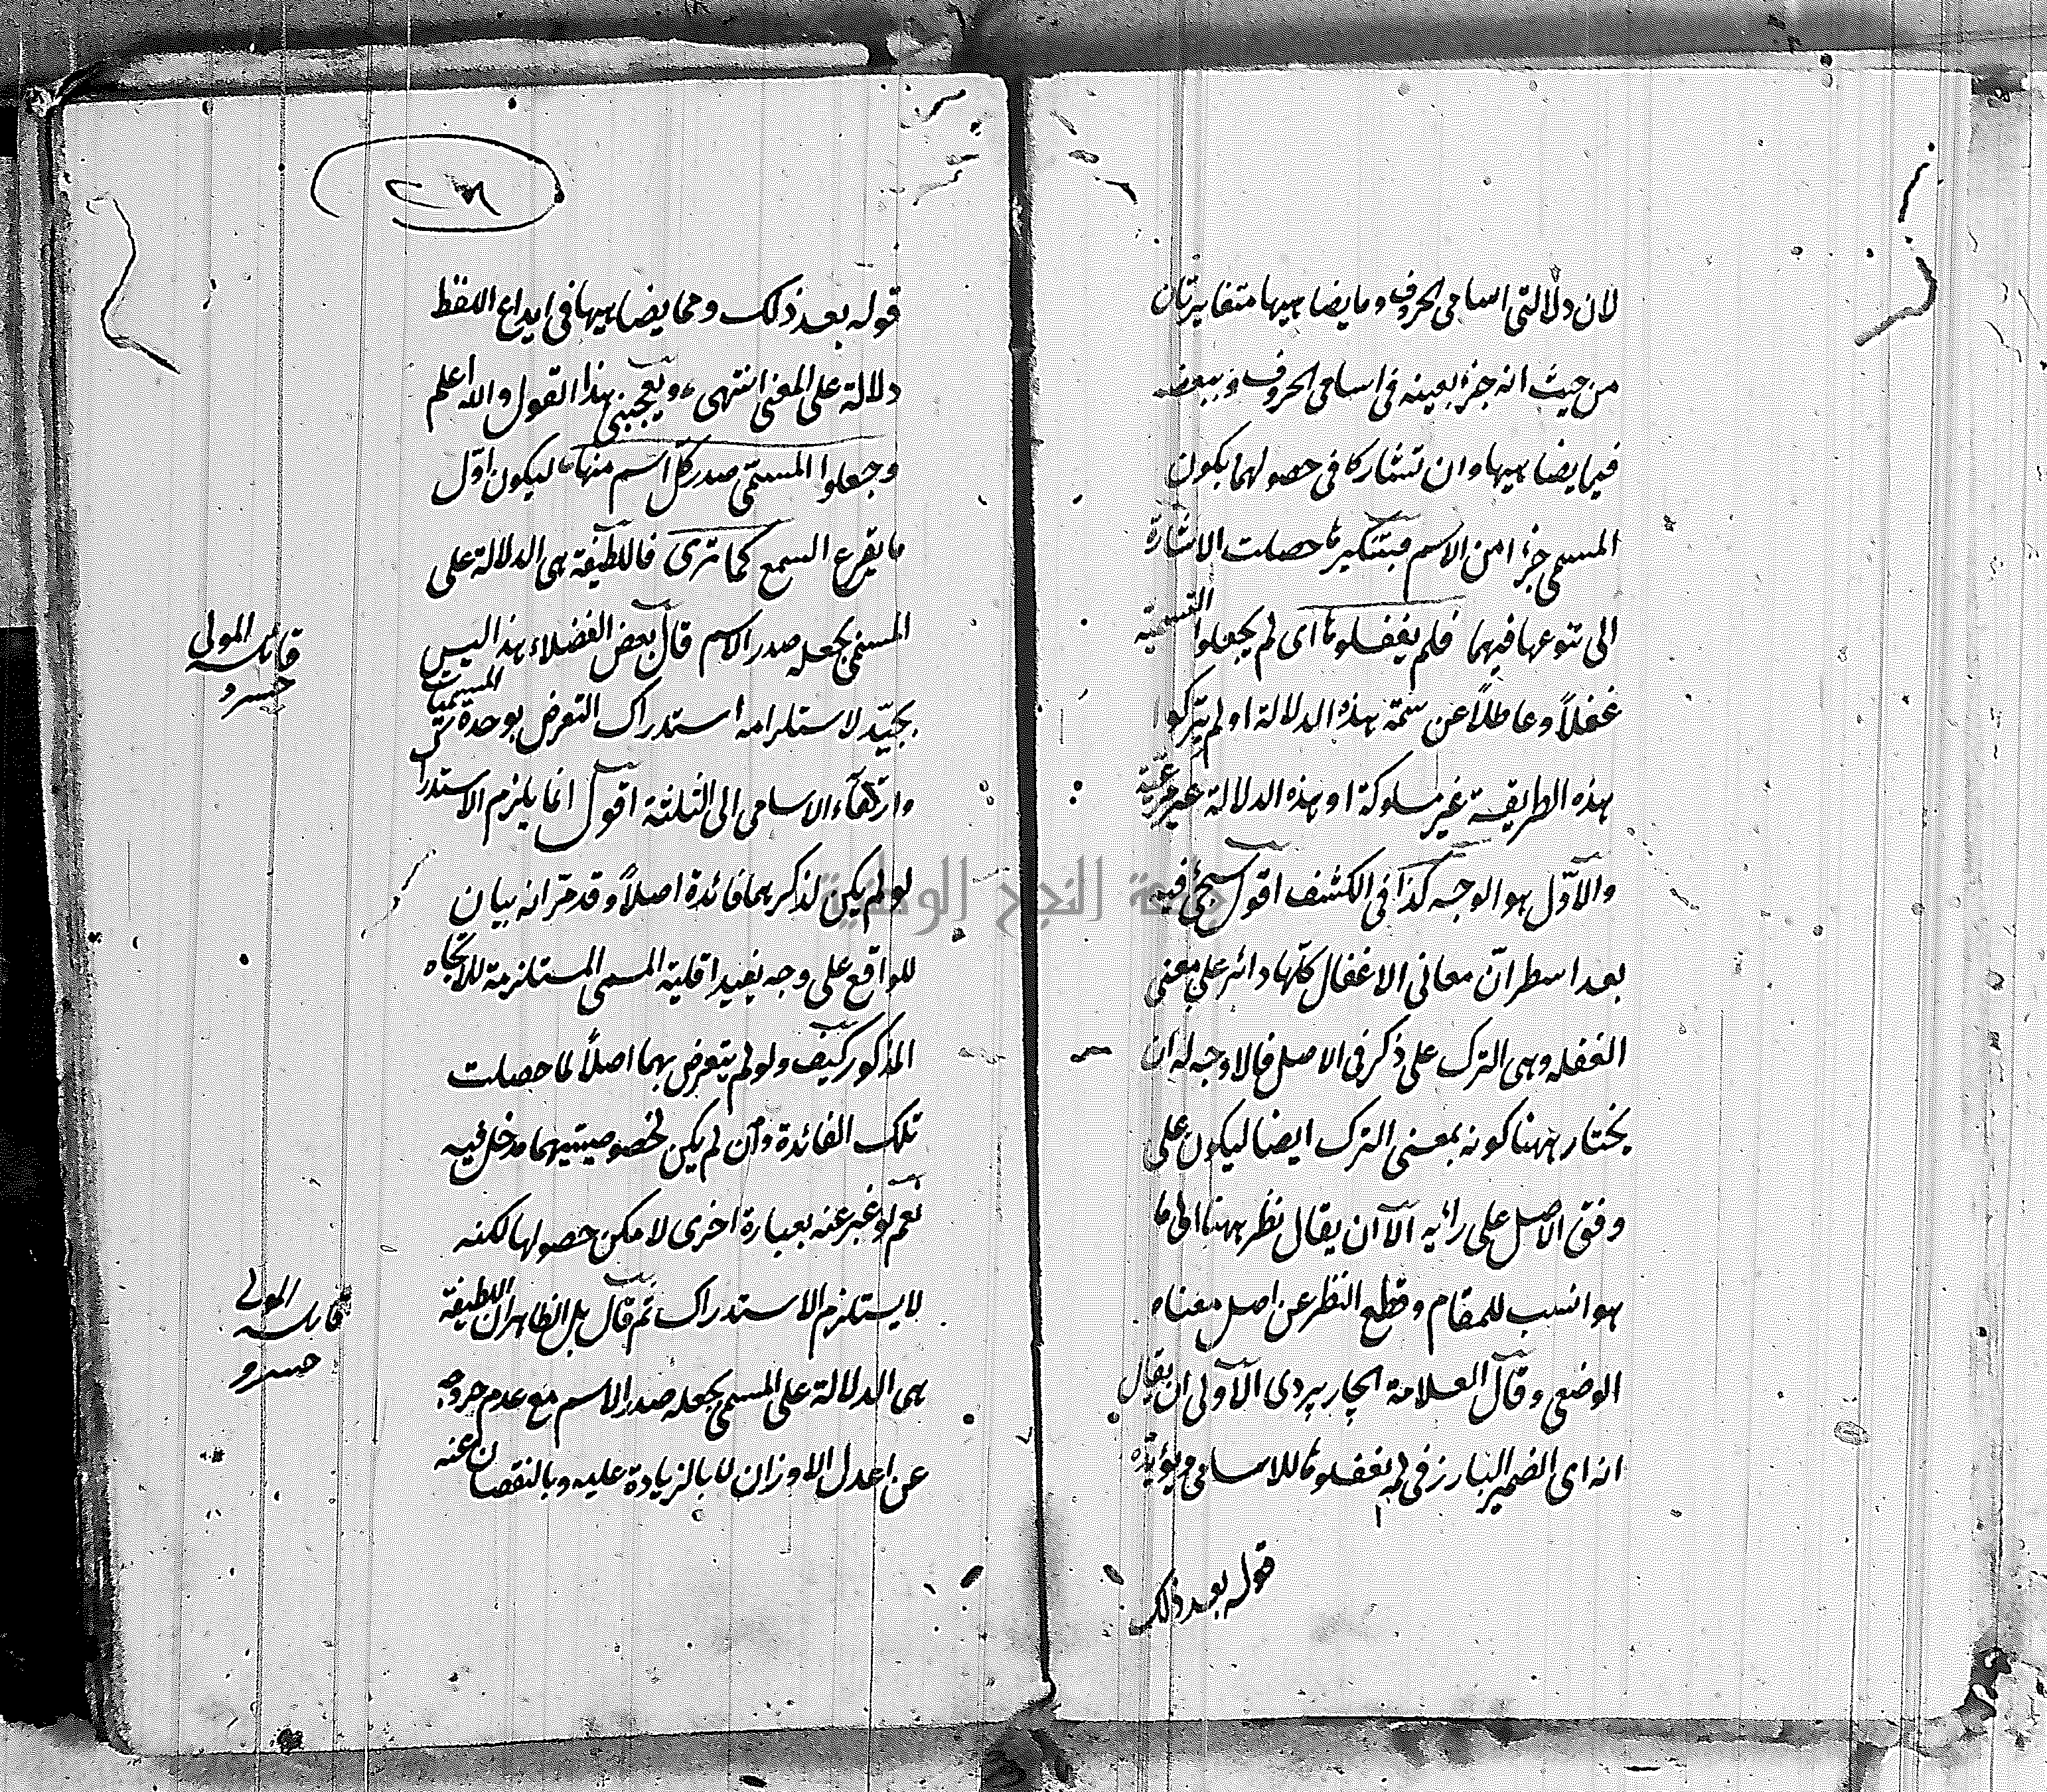 لان دلالتى اسامى الحروف وما يضاهيها متغايرتان
من حيث انه جزء بعينه فى اسامى الحروف وببعضه
فيما يضاهيها وان تشاركا فى حصولهما بكون
المسمى جزءا من الاسم فبتنكيرها حصلت الاشارة
الى تنوعها فيهما فلم يغفلوها اى لم يجعلوا التسمية
غفلاً وعاطلاً عن سمة هذه الدلالة او لم يتركوا
هذه الطريقة غير مسلوكة او هذه الدلالة غير مرعية
والاوّل هو الوجه كذا فى الكشف اقول سيجئ فيه
بعد اسطر انّ معانى الاغفال كلّها دائر على معنى
الغفله وهى الترك على ذكر فى الاصل فالاوجه له ان
يختار ههنا كونه بمعنى الترك ايضا ليكون على
وفق الاصل على رائيه الا ان يقال نظر ههنا الى ما
هو انسب للمقام وقطع النظر عن اصل معناه
الوضعى وقال العلامة الچارپردى الاولى ان يقال
انه اى الضمير البارز فى لم يغفلوها للاسامى ويؤيده
قوله بعد ذلك
قوله بعد ذلك ومما يضاهيها فى ايداع اللفظ
دلالة على المعنى انتهى ويعجبنى هذا القول والله اعلم
وجعلوا المسمّى صدر كل اسم منها ليكون اوّل
ما يقرع السمع كما ترى فاللطيفة هى الدلالة على
المسمى بجعله صدر الاسم قال بعض الفضلاء هذا ليس
بجيّد لاستلزامه استدراك التعرض بوحدة المسميات
وارتقاء الاسامى الى الثلثة اقول انما يلزم الاستدراك
لو لم يكن لذكرهما فائدة اصلاً وقد مرّ انه بيان
للواقع على وجه يفيد اقلية المسمى المستلزمة للاتجاه
المذكور كيف ولو لم يتعرض بهما اصلاً لما حصلت
تلك الفائدة وان لم يكن لخصوصيتيهما مدخل فيه
نعم لو عبر عنه بعبارة اخرى لامكن حصولها لكنه
لا يستلزم الاستدراك ثم قال بل الظاهر ان اللطيفة
هى الدلالة على المسمى بجعله صدر الاسم مع عدم خروجه
عن اعدل الاوزان لا بالزيادة عليه وبالنقصان عنه
قائله المولى
خسرو
قائله المولى
خسرو
جامعة النجاح الوطنية